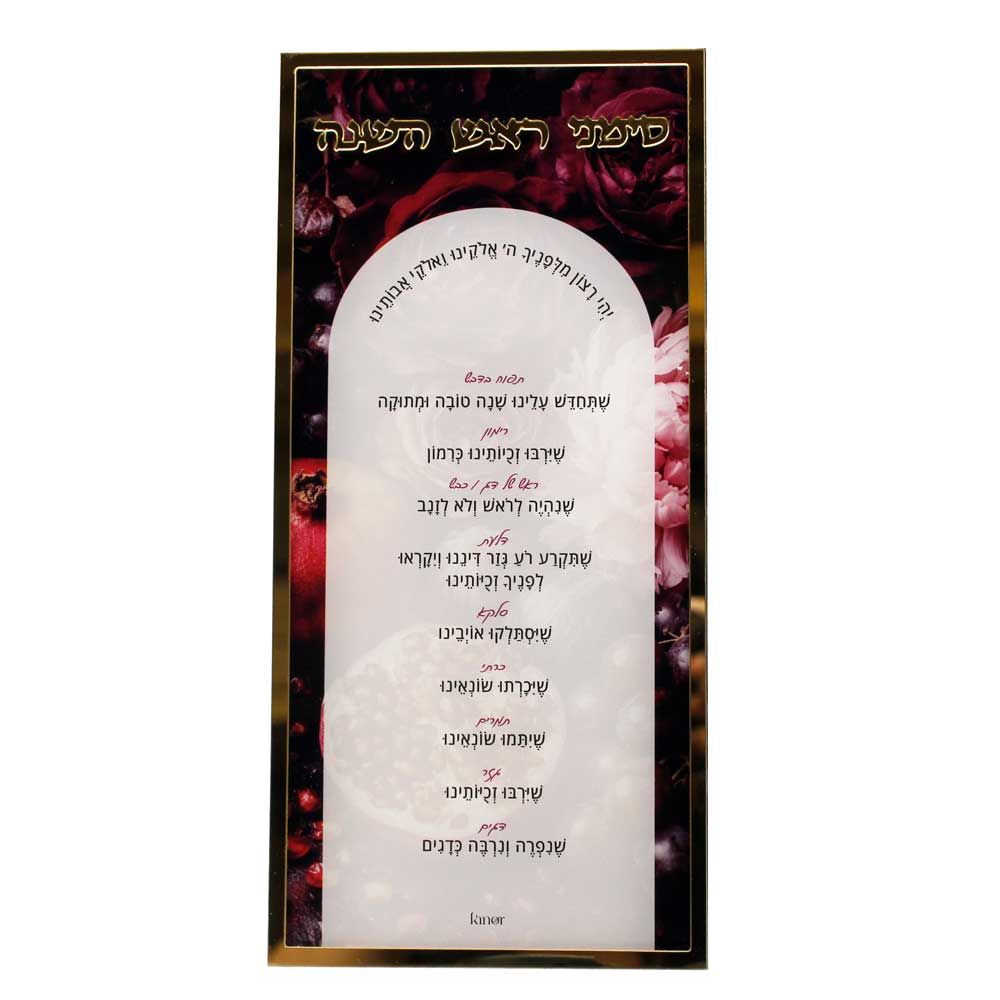 סימני ראש השנה
יְהִי רָצוֹן מִלְּפָנֶיךָ ה' אֱלֹקֵינוּ וֵאלֹקֵי אֲבוֹתֵינוּ
תפוח בדבש
שֶׁתְּחַדֵּשׁ עָלֵינוּ שָׁנָה טוֹבָה וּמְתוּקָה
רימון
שֶׁיִּרְבּוּ זְכֻיוֹתֵינוּ כְּרִמוֹן
ראש של דג / כבש
שֶׁנִהְיֶה לְרֹאשׁ וְלֹא לְזָנָב
דלעת
שֶׁתִּקְרַע רֹעַ גְּזַר דִּינֵנוּ וְיִקָרְאוּ
לְפָנֶיךָ זְכֻיּוֹתֵינוּ
סלקא
שֶׁיִּסְתַּלְּקוּ אוֹיְבֵינוּ
כרתי
שֶׁיִּכָּרְתוּ שׂוֹנְאֵינוּ
תמרים
שֶׁיִּתַּמּוּ שׂוֹנְאֵינוּ
גזר
שֶׁיִּרְבּוּ זְכֻיּוֹתֵינוּ
דגים
שֶׁנִּפְרֶה וְנִרְבֶּה כְּדָגִים
kinor